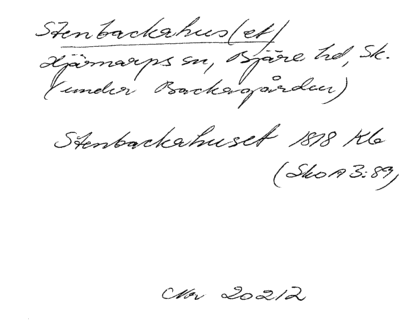 Stenbackahus(et)
Hjärnarps sn, Bjäre hd, Sk.
(under Backagården)
Stenbackahuset 1818 Kb
(SkOA 3:89)
Nr 20212